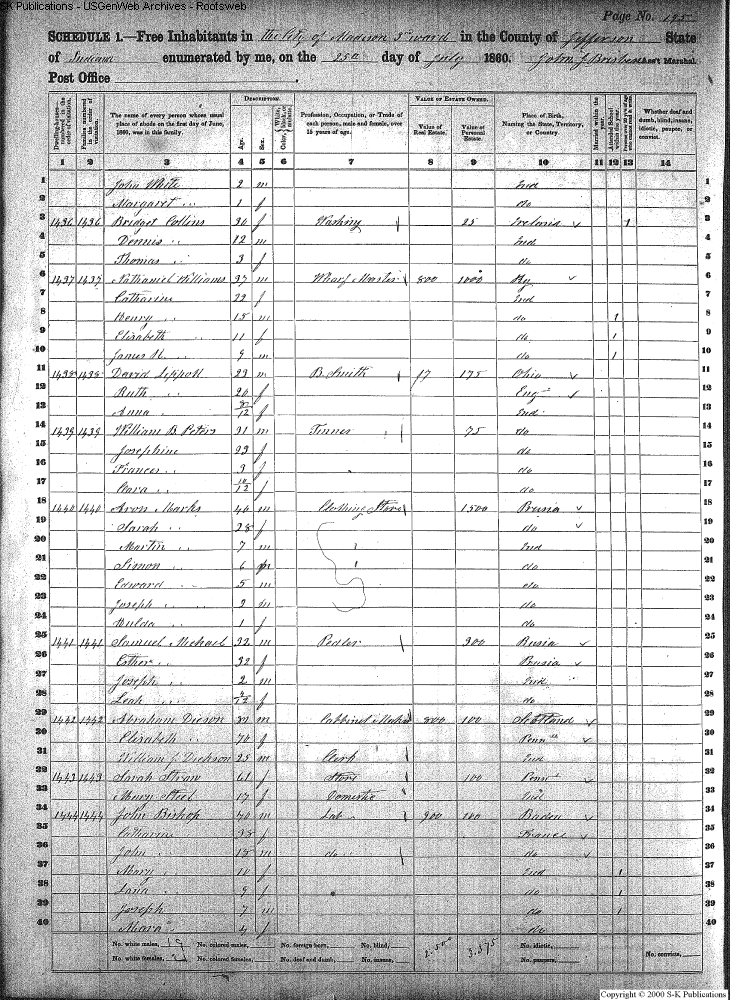 S-K Publications - USGenWeb Archives - Rootsweb
Page No. 195
SCHEDULE 1.—Free Inhabitants in the City of Madison 3rd ward in the County of Jefferson State
of Indiana enumerated by me, on the 25th day of July 1860. John J Ass't Marshal.
Post Office
DESCRIPTION. VALUE OF ESTATE OWNED.
Dwelling-houses—numbered in the order of visitation. Families numbered in the order of visitation. The name of every person whose usual place of abode on the first day of June, 1860, was in this family. Age. Sex. Color, White, black, or mulatto. Profession, Occupation, or Trade of each person, male and female, over 15 years of age. Value of Real Estate. Value of Personal Estate. Place of Birth, Naming the State, Territory, or Country. Married within the year. Attended School within the year. Whether deaf and dumb, blind, insane, idiotic, pauper, or convict.
1 2 3 4 5 6 7 8 9 10 11 12 13 14
1 John White 2 m Ind 1
2 Margaret " 1 f do 2
3 1436 1436 Bridget Collins 30 f Washing 25 1 3
4 Dennis " 12 m Ind 4
5 Thomas " 3 f do 5
6 1437 1437 Nathaniel Williams 37 m Wharf Master 800 1000 Ky 6
7 Catharine f Ind 7
8 Henry " 15 m do 1 8
9 Elizabeth " 11 f do 1 9
10 James H. " 9 m do 1 10
11 1438 1438 David 23 m B. Smith 175 Ohio 11
12 Ruth " 20 f Eng 12
13 Anna " /12 f Ind 13
14 1439 1439 William B. Peters 31 m Tinner 75 do 14
15 Josephine 23 f do 15
16 Frances " 3 f do 16
17 Clara " 10/12 f do 17
18 1440 1440 Aron Marks 40 m Clothing Store 1500 Prusia 18
19 Sarah " 28 f do 19
20 Martin " 7 m Ind 20
21 Simon " 6 m do 21
22 Edward " 5 m do 22
23 Joseph " m do 23
24 Hulda " 1 f do 24
25 1441 1441 Samuel Michael 32 m Pedler 300 Rusia 25
26 Esther " 32 f Prusia 26
27 Joseph " 2 m Ind 27
28 Leah " /12 f do 28
29 1442 1442 Abraham m Cabbinet Maker 800 100 Scotland 29
30 Elizabeth " 70 f Penn 30
31 William J. Dickson 25 m Clerk Ind 31
32 1443 1443 Sarah Straw 61 f Store 100 Penn 32
33 Mary Steel 17 f Domestic Ind 33
34 1444 1444 John Bishop 40 m Lab 900 100 Baden 34
35 Catharine 38 f France 35
36 John " m do do 36
37 Mary " 10 f Ind 1 37
38 Lana " 9 f do 1 38
39 Joseph " 7 m do 1 39
40 " 4 f do 40
No. white males, 19 No. colored males, No. foreign born, No. blind, 2.500 3.375 No. idiotic, No. convicts,
No. white females, 21 No. colored females, No. deaf and dumb, No. insane, No. paupers,
Copyright © 2000 S-K Publications